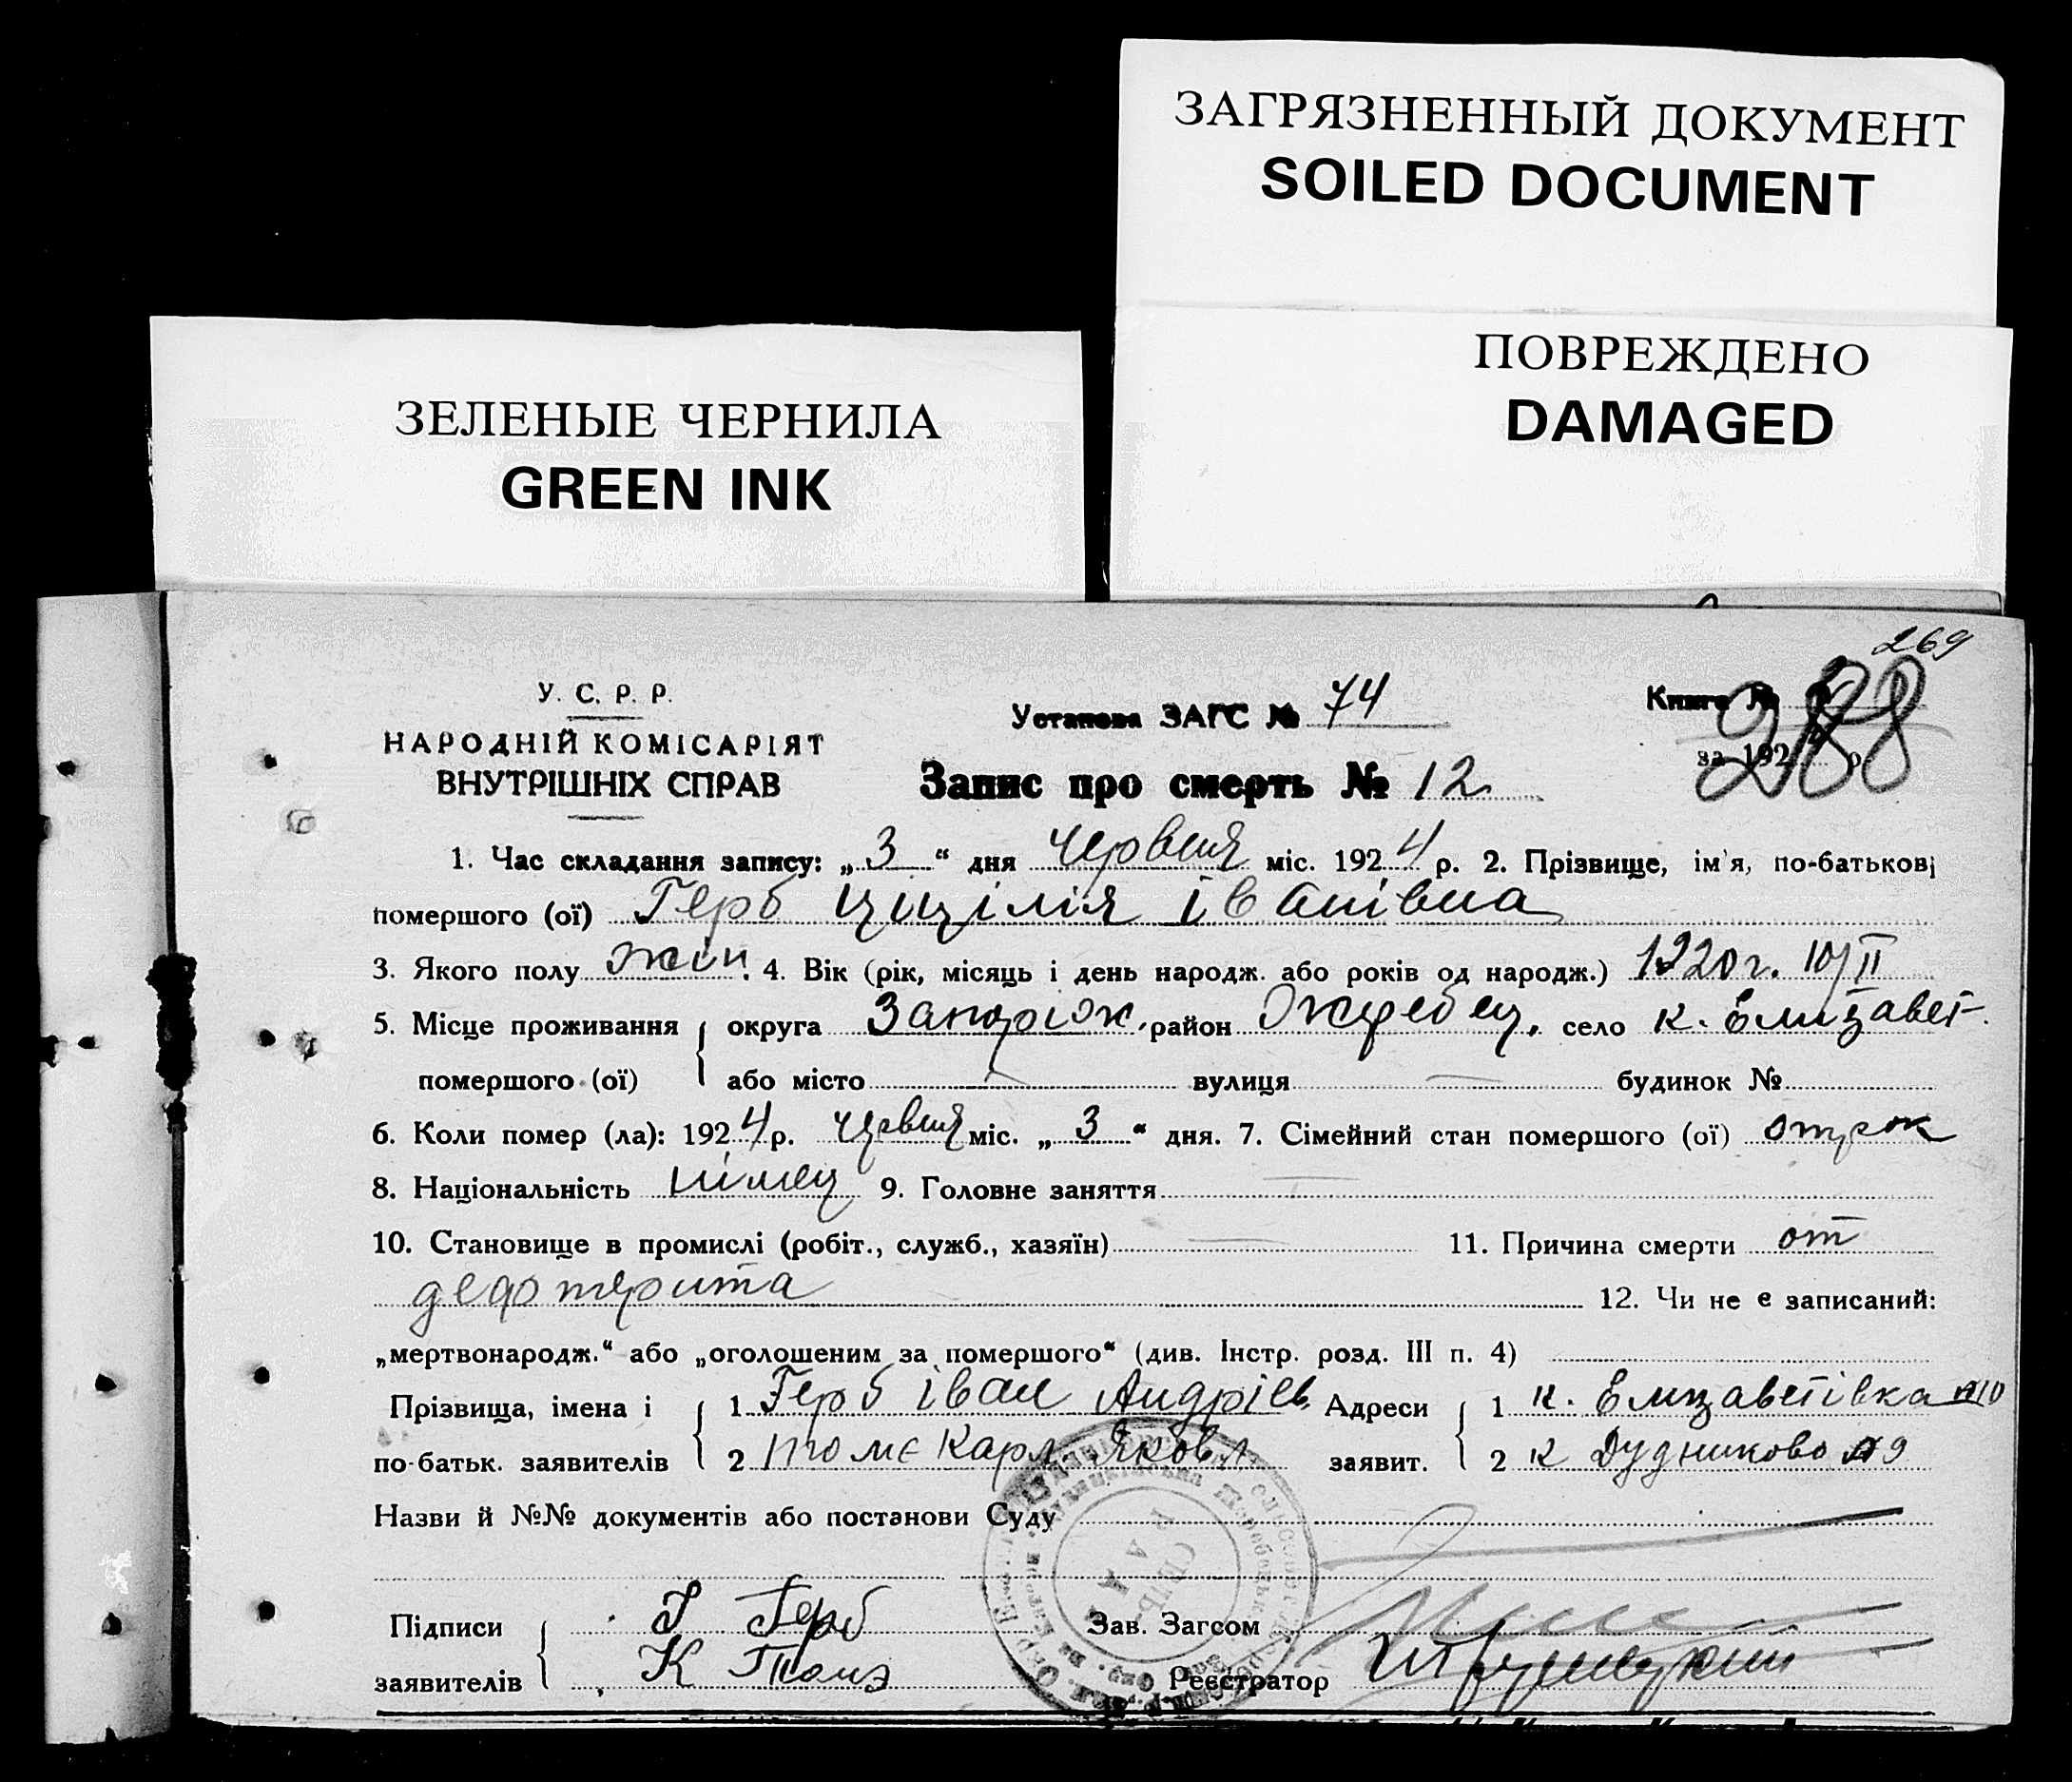 ЗАГРЯЗНЕННЫЙ ДОКУМЕНТ
SOILED DOCUMENT
ПОВРЕЖДЕНО
DAMAGED
ЗЕЛЕНЫЕ ЧЕРНИЛА
GREEN INK
269
288
У. С. Р. Р.
НАРОДНІЙ КОМІСАРІЯТ
ВНУТРІШНІХ СПРАВ
Установа ЗАГС № 74
Книга №
за 192 р.
Запис про смерть № 12
1. Час складання запису: „3“ дня червня міс. 1924 р. 2. Прізвище, ім'я, по-батькові
помершого (ої) Герб Циցілія Іванівна
3. Якого полу жін. 4. Вік (рік, місяць і день народж. або років од народж.) 1920 г. 10/II
5. Місце проживання округа Запоріж. район Жеребец. село к. Елизавет.
помершого (ої) або місто — вулиця — будинок №
6. Коли помер (ла): 1924 р. червня міс. „3“ дня. 7. Сімейний стан помершого (ої) отрок
8. Національність німец 9. Головне заняття —
10. Становище в промислі (робіт., служб., хазяїн) — 11. Причина смерти от
дефтерита 12. Чи не є записаний:
„мертвонародж.“ або „оголошеним за помершого“ (див. Інстр. розд. III п. 4)
Прізвища, імена і 1 Герб Іван Андріев. Адреси 1 к. Елизаветівка №10
по-батьк. заявителів 2 Томе Карл Яковл заявит. 2 к Дудниково №9
Назви й №№ документів або постанови Суду
Підписи Г Герб Зав. Загсом
заявителів К Томэ Реєстратор